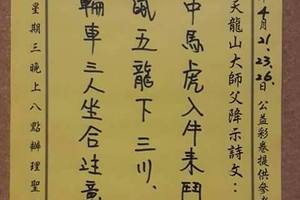 年4月21.23.26.日公益彩卷提供參
天龍山大師父降示詩文：
中馬虎入牛來鬥
鼠五龍下三川、
輪車三人坐合注意
星期三晚上八點辦理聖